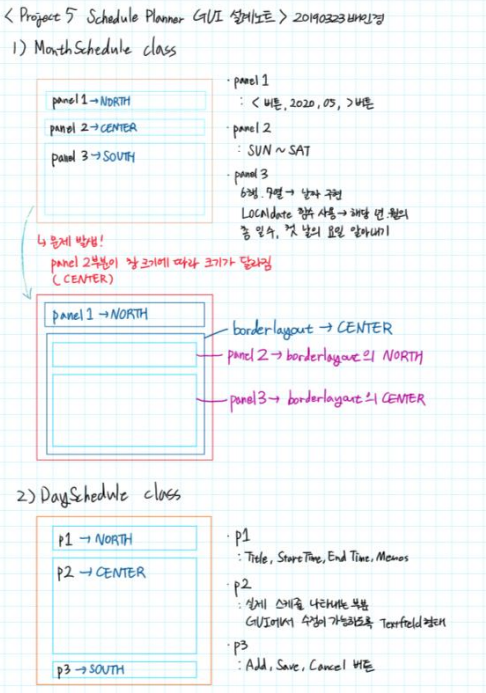 < Project 5 Schedule Planner GUI 설계노트 > 20190323 배인경
1) MonthSchedule class
panel 1 → NORTH
panel 2 → CENTER
panel 3 → SOUTH
· panel 1
: < 버튼, 2020, 05, > 버튼
· panel 2
: SUN ~ SAT
· panel 3
6행, 7열 → 날짜 구현
Localdate 함수 사용 → 해당 연.월의
총 일수, 첫 날의 요일 알아내기
↳ 문제 발생!
panel 2부분이 창 크기에 따라 크기가 달라짐
(CENTER)
panel 1 → NORTH
borderlayout → CENTER
panel 2 → borderlayout의 NORTH
panel 3 → borderlayout의 CENTER
2) DaySchedule class
p1 → NORTH
p2 → CENTER
p3 → SOUTH
· p1
: Title, Start Time, End Time, Memos
· p2
: 실제 스케줄 나타내는 부분
GUI에서 수정이 가능하도록 Textfield 형태
· p3
: Add, Save, Cancel 버튼